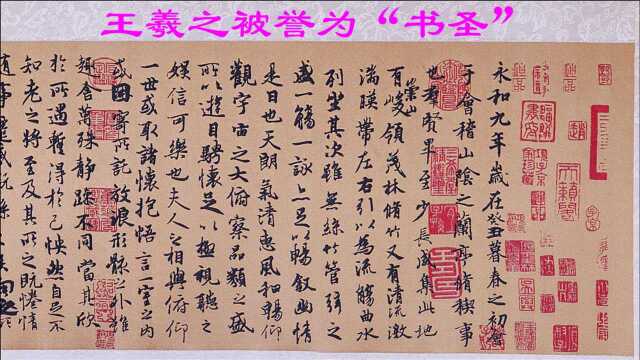 王羲之被誉为“书圣”
永和九年歲在癸丑暮春之初會
于會稽山陰之蘭亭脩稧事
也羣賢畢至少長咸集此地
有崇山峻領茂林脩竹又有清流激
湍暎帶左右引以為流觴曲水
列坐其次雖無絲竹管弦之
盛一觴一詠亦足以暢敘幽情
是日也天朗氣清惠風和暢仰
觀宇宙之大俯察品類之盛
所以遊目騁懷足以極視聽之
娛信可樂也夫人之相與俯仰
一世或取諸懷抱悟言一室之內
或因寄所託放浪形骸之外雖
趣舍萬殊靜躁不同當其欣
於所遇暫得於己怏然自足不
知老之將至及其所之既惓情